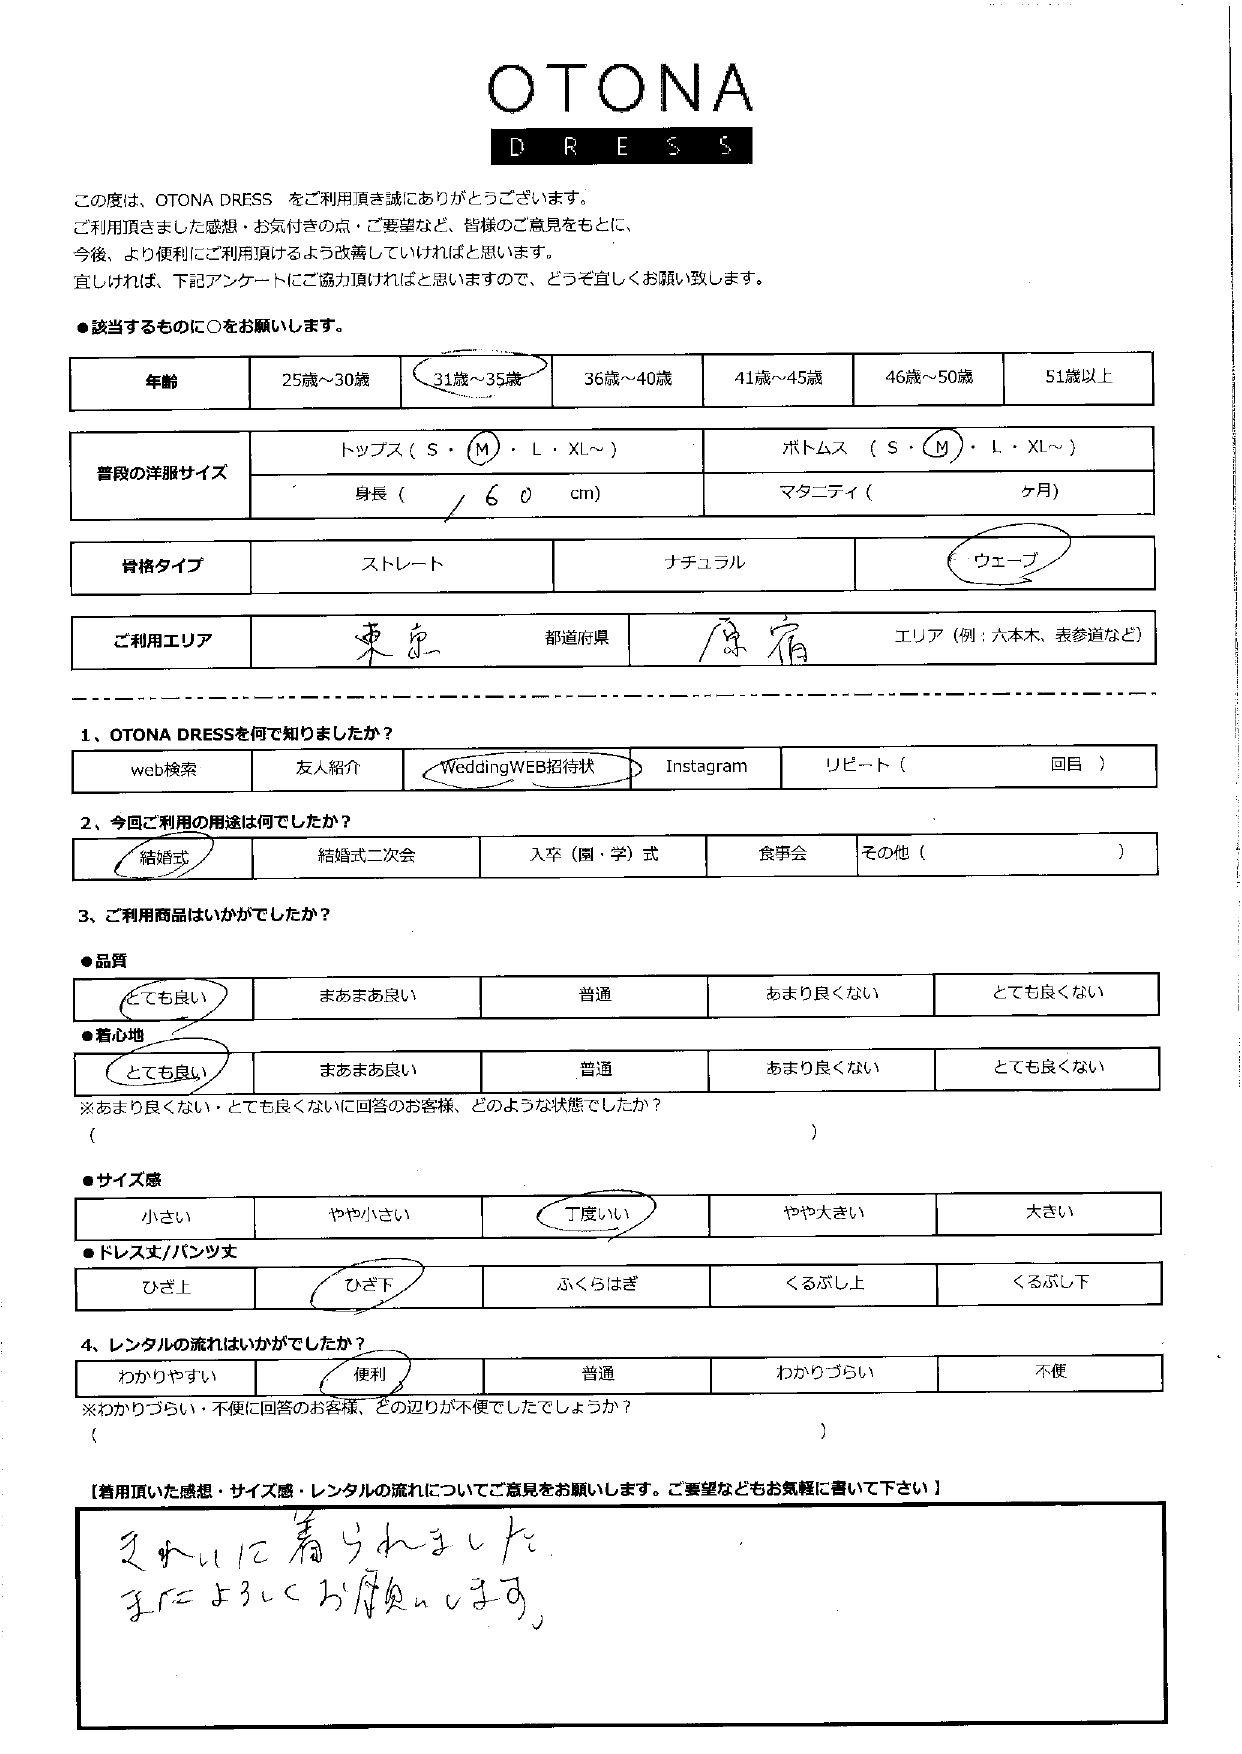 OTONA
DRESS
この度は、OTONA DRESS　をご利用頂き誠にありがとうございます。
ご利用頂きました感想・お気付きの点・ご要望など、皆様のご意見をもとに、
今後、より便利にご利用頂けるよう改善していければと思います。
宜しければ、下記アンケートにご協力頂ければと思いますので、どうぞ宜しくお願い致します。
●該当するものに○をお願いします。
年齢 25歳～30歳 31歳～35歳 36歳～40歳 41歳～45歳 46歳～50歳 51歳以上
普段の洋服サイズ トップス（ S ・ M ・ L ・ XL～ ） ボトムス （ S ・ M ・ L ・ XL～ ）
身長（ 160 cm） マタニティ（ ヶ月）
骨格タイプ ストレート ナチュラル ウェーブ
ご利用エリア 東京 都道府県 原宿 エリア（例：六本木、表参道など）
1、OTONA DRESSを何で知りましたか？
web検索 友人紹介 WeddingWEB招待状 Instagram リピート（ 回目 ）
2、今回ご利用の用途は何でしたか？
結婚式 結婚式二次会 入卒（園・学）式 食事会 その他（ ）
3、ご利用商品はいかがでしたか？
●品質
とても良い まあまあ良い 普通 あまり良くない とても良くない
●着心地
とても良い まあまあ良い 普通 あまり良くない とても良くない
※あまり良くない・とても良くないに回答のお客様、どのような状態でしたか？
（ ）
●サイズ感
小さい やや小さい 丁度いい やや大きい 大きい
●ドレス丈/パンツ丈
ひざ上 ひざ下 ふくらはぎ くるぶし上 くるぶし下
4、レンタルの流れはいかがでしたか？
わかりやすい 便利 普通 わかりづらい 不便
※わかりづらい・不便に回答のお客様、どの辺りが不便でしたでしょうか？
（ ）
【着用頂いた感想・サイズ感・レンタルの流れについてご意見をお願いします。ご要望などもお気軽に書いて下さい 】
きれいに着られました
またよろしくお願いします。